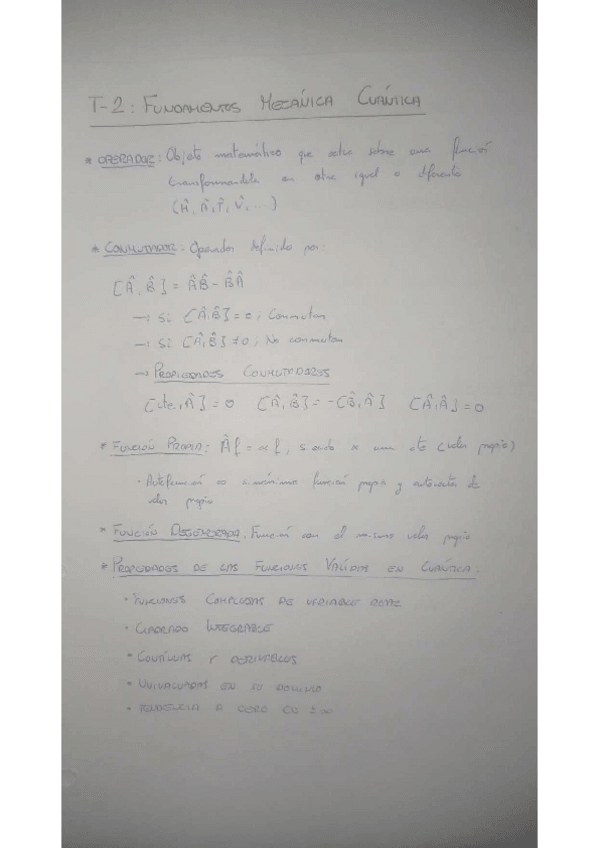 T-2: FUNDAMENTOS MECÁNICA CUÁNTICA
* OPERADOR: Objeto matemático que actua sobre una función
transformandola en otra igual o diferente
(Ĥ, , , , ...)
* CONMUTADOR: Operador definido por:
[Â, B̂] = ÂB̂ - B̂Â
→ Si [Â,B̂] = 0; Conmutan
→ Si [Â,B̂] ≠ 0; No conmutan
→ PROPIEDADES CONMUTADORES
[cte, Â] = 0 [Â, B̂] = -[B̂, Â] [Â, Â] = 0
* FUNCIÓN PROPIA: Âf = αf, siendo α una cte (valor propio)
· Autofunción es sinónimo función propia y autovalor de
valor propio
* FUNCIÓN DEGENERADA: Función con el mismo valor propio
* PROPIEDADES DE LAS FUNCIONES VÁLIDAS EN CUÁNTICA:
· FUNCIONES COMPLEJAS DE VARIABLE REAL
· CUADRADO INTEGRABLE
· CONTÍNUAS Y DERIVABLES
· UNIVALUADAS EN SU DOMINIO
· TENDENCIA A CERO EN ±∞